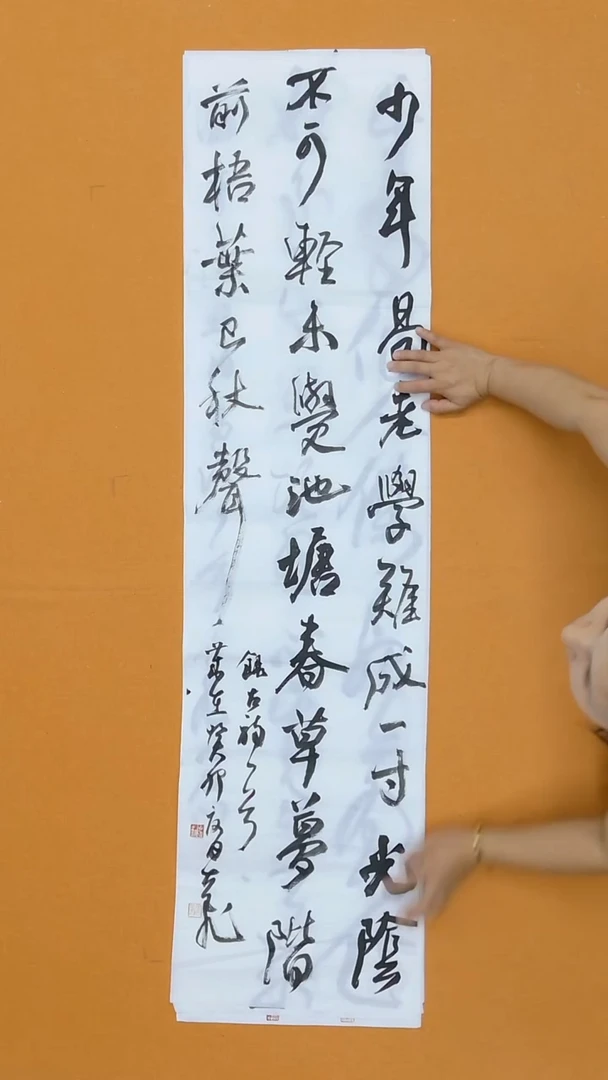 少年易老學難成一寸光陰
不可輕未覺池塘春草夢階
前梧葉已秋聲
錄古詩一首
歲在癸卯